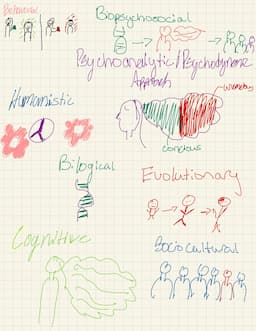 Behavioral
Biopsychosocial
Psychoanalytic/Psychodynamic
Approach
Humanistic
conscious
Bilogical
Evolutionary
Cognitive
Sociocultural